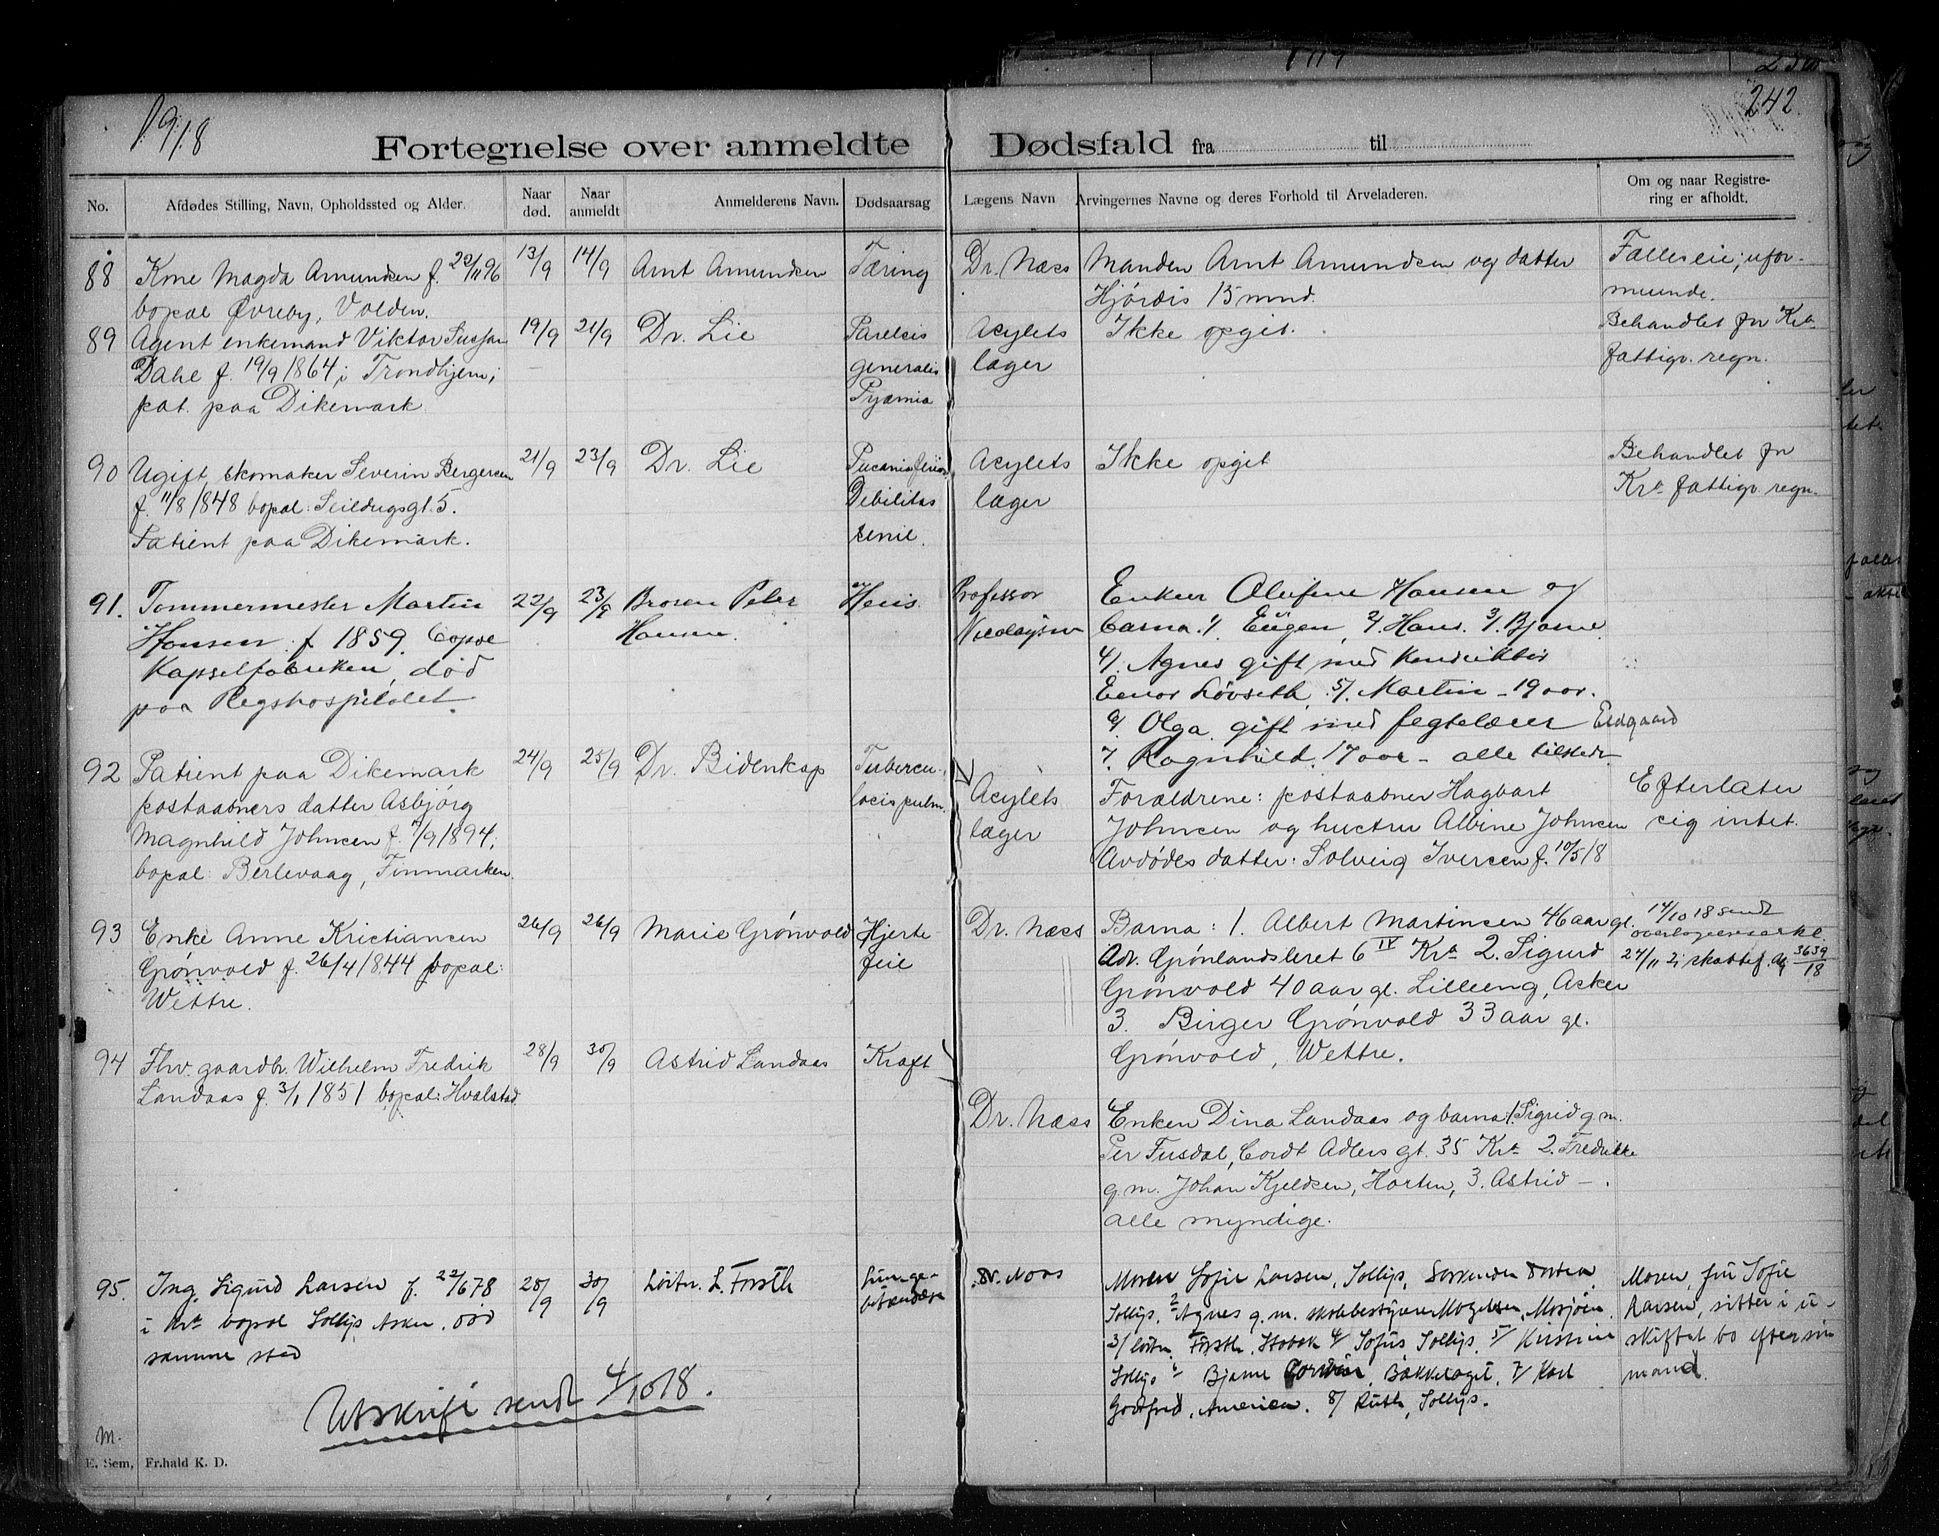 1918
242.
Fortegnelse over anmeldte Dødsfald fra til
No.
Afdødes Stilling, Navn, Opholdssted og Alder.
Naar død.
Naar anmeldt
Anmelderens Navn.
Dødsaarsag
Lægens Navn
Arvingernes Navne og deres Forhold til Arveladeren.
Om og naar Registre-
ring er afholdt.
88
Kone Magda Amundsen f. 20/11 96
bopæl Øvreby, Volden.
13/9
14/9
Arnt Amundsen
Tæring
Dr. Næss
Manden Arnt Amundsen og datter
Hjördis 15 mnd.
Fælleseie; ufor-
muende.
89
Agent enkemand Viktor
Dahl f. 19/9 1864 i Trondhjem;
pat. paa Dikemark
19/9
21/9
Dr. Lie
Paralsis
generalis
Pyæmia
Asylets
læger
Ikke opgit.
Behandlet fr Kra.
fattigv. regn.
90
Ugift skomaker Severin Bergersen
f. 11/8 1848 bopæl: Seildugsgt. 5.
Patient paa Dikemark.
21/9
23/9
Dr. Lie
Debilitas
senil.
Asylets
læger
Ikke opgit
Behandlet fr
Kra fattigv. regn.
91.
Tømmermester Martin
Hansen f. 1859. bopæl
Kapselfabriken, død
paa Rigshospitalet.
22/9
23/9
Broren Peter
Hansen.
Professor
Nicolaysen
Enken Olufine Hansen og
barna: 1/. Eugen, 2/. Hans. 3/. Bjarne.
4/. Agnes gift med Konduktør
Einar Løvseth, 5/. Martin - 19 aar.
6/. Olga gift med fegtelærer
7. Ragnhild. 17 aar - alle tilstede
92
Patient paa Dikemark
postaabners datter Asbjørg
Magnhild Johnsen f. 7/9 1894;
bopæl: Berlevaag, Finmarken.
24/9
25/9
Dr. Bidenkap
Tubercu-
losis pulm.
Asylets
læger
Forældrene: postaabner Hagbart
Johnsen og hustru Albine Johnsen
Avdødes datter: Solveig Iversen f. 10/5 18
Efterlater
sig intet.
93
Enke Anne Kristiansen
Grønvold f. 26/4 1844 bopæl:
Wettre.
26/9
26/9
Marie Grønvold
Hjerte-
feil
Dr. Næss
Barna: 1. Albert Martinsen 46 aar gl.
Adr. Grønlandsleret 6 IV Kra 2. Sigurd
Grønvold 40 aar gl. Lilleeng, Asker
3. Birger Grønvold 33 aar gl.
Grønvold, Wettre.
14/10 18 sendt
24/11 skattef. 3639/18
94
Fhv. gaardbr. Wilhelm Fredrik
Landaas f. 3/1 1851 bopæl: Hvalstad
28/9
30/9
Astrid Landaas
Kræft
Dr. Næss
Enken Dina Landaas og barna: 1. Sigrid g.m.
Per Fusdal, Cordt Adlers gt. 35 Kra 2. Fredrikke
g.m. Johan Kjeldsen, Horten, 3. Astrid - .
alle myndige.
95.
Ing. Sigurd Larsen f. 22/6 78
i Kra bopæl Solbys Asker. død
samme sted
28/9
30/9
Løitn. L. Forsth
Lunge-
betændelse
Dr. Næss
Moren Sofie Larsen, Solbys, Søskende:
Solbys, 2 Agnes g.m. skolebestyrer Mogelsen, Mosjøen
3/ Løitn. Forsth, 4/ Sofus Solbys, 5/ Kirstine
Solbys Bjarne Bækkelaget. 7/ Karl
Godfred, Amerika. 8/ Ruth, Solbys.
Moren, fru Sofie
Larsen, sitter i u-
skiftet bo efter sin
mand.
Utskrift sendt 4/10 18.
m.
E. Sem, Fr.hald K. D.